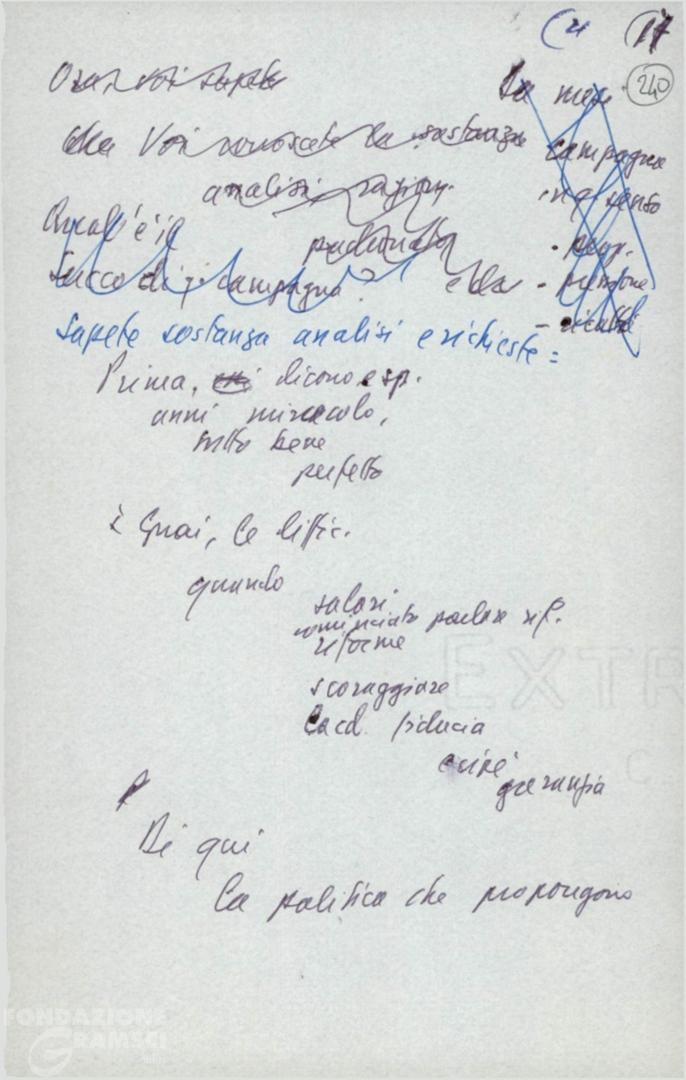 (21 17
240
Ora, voi sapete
che Voi conoscete la sostanza
analisi ragioni
Qual'è il
padronato
Succo di q. campagna? e da
La
campagna
in q. senso
- pressione
- ricatti
Sapete sostanza analisi e richieste =
Prima, dicono esp.
anni miracolo,
tutto bene
perfetto
I Guai, le diffic.
quando
salari
cominciato parlare rif.
riforme
scoraggiare
La cd. fiducia
cioè
garanzia
Di qui
la politica che propongono
EXTR
C
FONDAZIONE
GRAMSCI